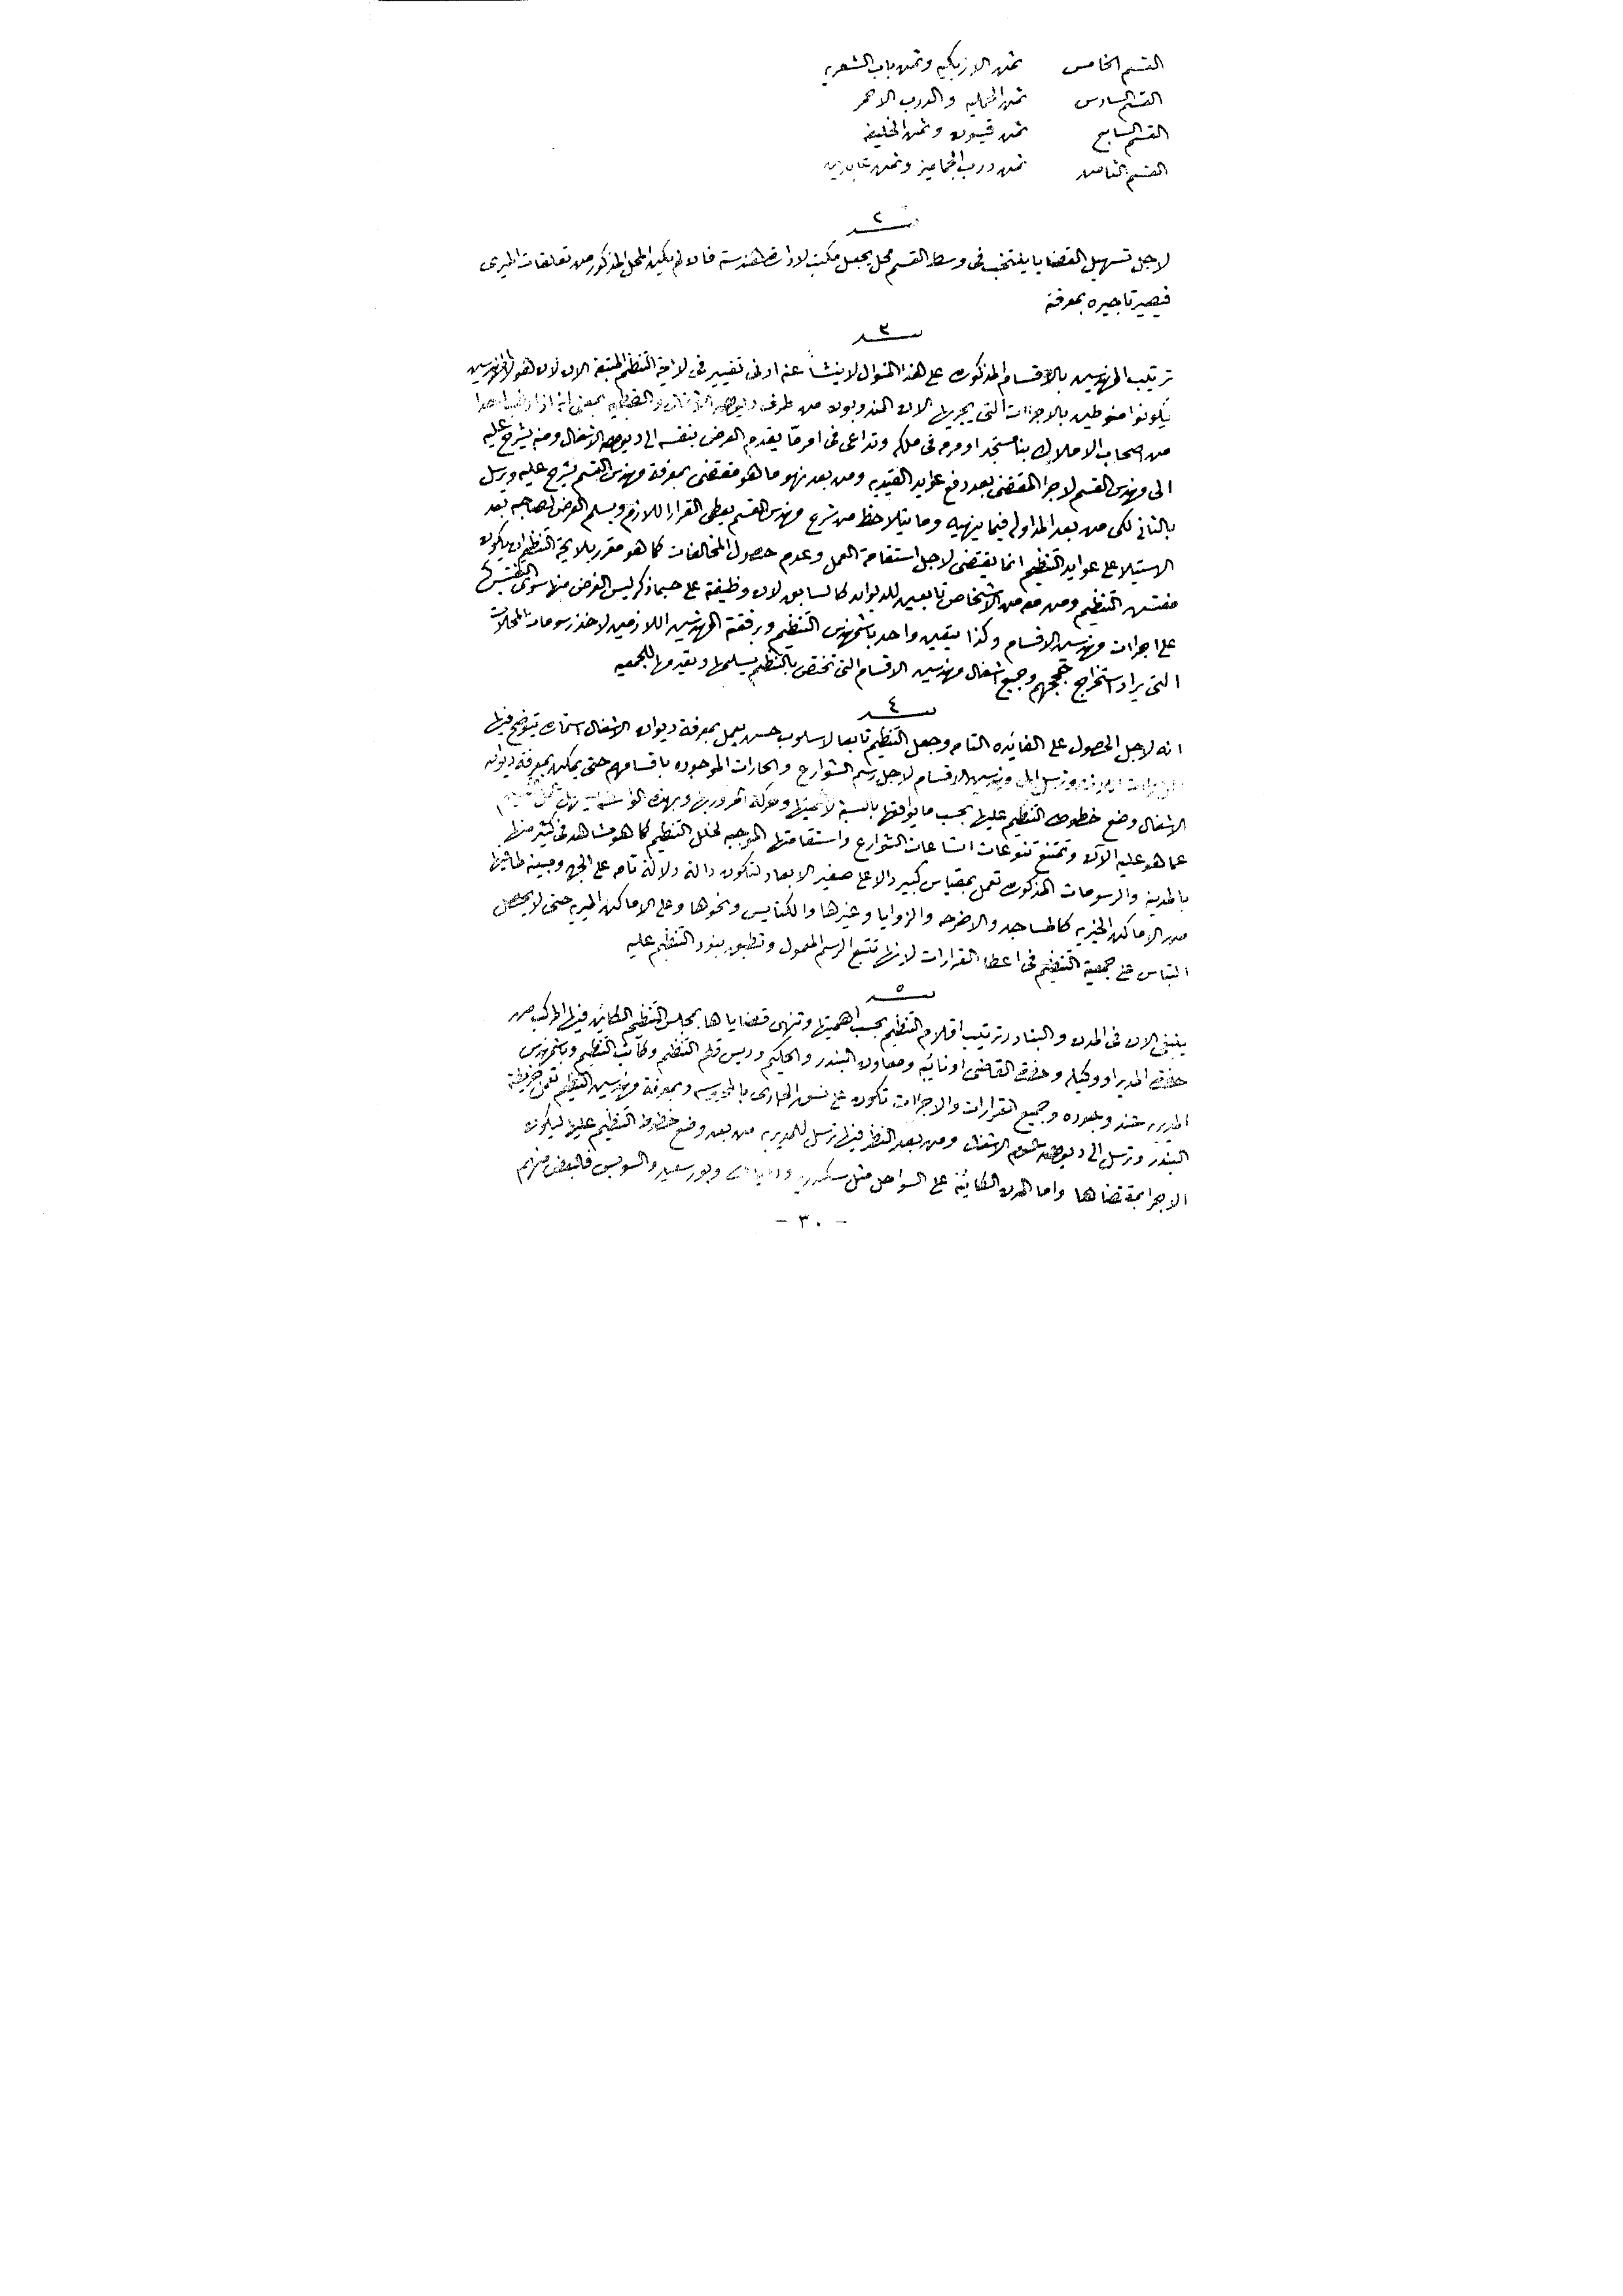 القسم الخامس ثمن الازبكيه وثمن باب الشعريه
القسم السادس ثمن الجماليه والدرب الاحمر
القسم السابع ثمن قيسون وثمن الخليفه
القسم الثامن ثمن درب الجماميز وثمن عابدين
٢
لاجل تسهيل القضايا ينتخب فى وسط القسم محل يجعل مكتب لادارة الهندسة فان لم يكن المحل المذكور من تعلقات الميرى
فيصير تاجيره بمعرفة
٣
ترتيب المهندسين بالاقسام المذكوره على هذا المنوال لا ينشأ عنه ادنى تغيير فى لايحة التنظيم المتبعة الان لان هؤلا المهندسين
يكونوا منوطين بالاجراات التى يجريها الان المندوبون من طرف ديوان الاشغال والضبطيه بمعنى انه اذا
من اصحاب الاملاك بنا مستجد او مرمه فى ملكه وتداعى فى امر ما يقدم العرض بنفسه الى ديوان الاشغال ومنه يشرح عليه
الى مهندس القسم لاجرا المقتضى بعد دفع عوايد القيديه ومن بعد نهو ما هو مقتضى بمعرفة مهندس القسم يشرح عليه ويرسل
بالثانى لكى من بعد المداوله فيما ينهيه وما يتلاحظ من شرح مهندس القسم يعطى القرار اللازم ويسلم العرض لصاحبه بعد
الاستيلا على عوايد التنظيم انما يقتضى لاجل استقامة العمل وعدم حصول المخالفات كما هو مقرر بلايحة التنظيم ان يكون
مفتش التنظيم ومن معه من الاشخاص تابعين للديوان كالسابق لان وظيفته على حسبما ذكر ليس الغرض منها سوى التفتيش
على اجراات مهندسين الاقسام وكذا يتعين واحد باشمهندس التنظيم وبرفقته المهندسين اللازمين لاخذ رسومات المحلات
التى يراد استخراج حججهم وجميع اشغال مهندسين الاقسام التى تختص بالتنظيم يستلمها ويقدمها للجمعيه
٤
انه لاجل الحصول على الفائده التامه وجعل التنظيم تابعا لاسلوب حسن يعمل بمعرفة ديوان الاشغال استماره يتوضح فيها
وترسل الى مهندسين الاقسام لاجل رسم الشوارع والحارات الموجوده باقسامهم حتى يمكن بمعرفة ديوان
الاشغال وضع خطوط التنظيم عليها بحسب ما يوافقها بالنسبة لاهميتها وحركة المرور بها وبهذه
عما هو عليه الآن وتمتنع تنوعات اتساعات الشوارع واستقامتها الموجبه لخلل التنظيم كما هو مشاهد فى كثير منها
بالمدينه والرسومات المذكوره تعمل بمقياس كبير دالا على صغير الابعاد لتكون دالة دلالة تامه على الجهه ومبينه لما فيها
من الاماكن الخيريه كالمساجد والاضرحه والزوايا وغيرها والكنايس ونحوها وعلى الاماكن الميريه حتى لا يحصل
التباس على جمعية التنظيم فى اعطا القرارات لانها تتبع الرسم المعمول وتطبيق بنود التنظيم عليه
٥
ينبغى الان فى المدن والبنادر ترتيب اقلام التنظيم بحسب اهميتها وتنهى قضاياها بمجلس التنظيم الكاين فيها المركب من
حضرة المدير او وكيله وحضرة القاضى او نائبه ومعاون البندر والحكيم وريس قلم التنظيم وكاتب التنظيم وباشمهندس
المديريه وجميع القرارات والاجراات تكون على نسق الجارى بالمحروسه وبمعرفة مهندسين التنظيم تعمل خريطة
البندر وترسل الى ديوان عموم الاشغال ومن بعد النظر فيها ترسل للمديريه من بعد وضع خطوط التنظيم عليها ليكون
الاجرا بمقتضاها واما المدن الكائنة على السواحل مثل سكندريه ودمياط وبور سعيد والسويس فالبعض منهم
- ٣٠ -